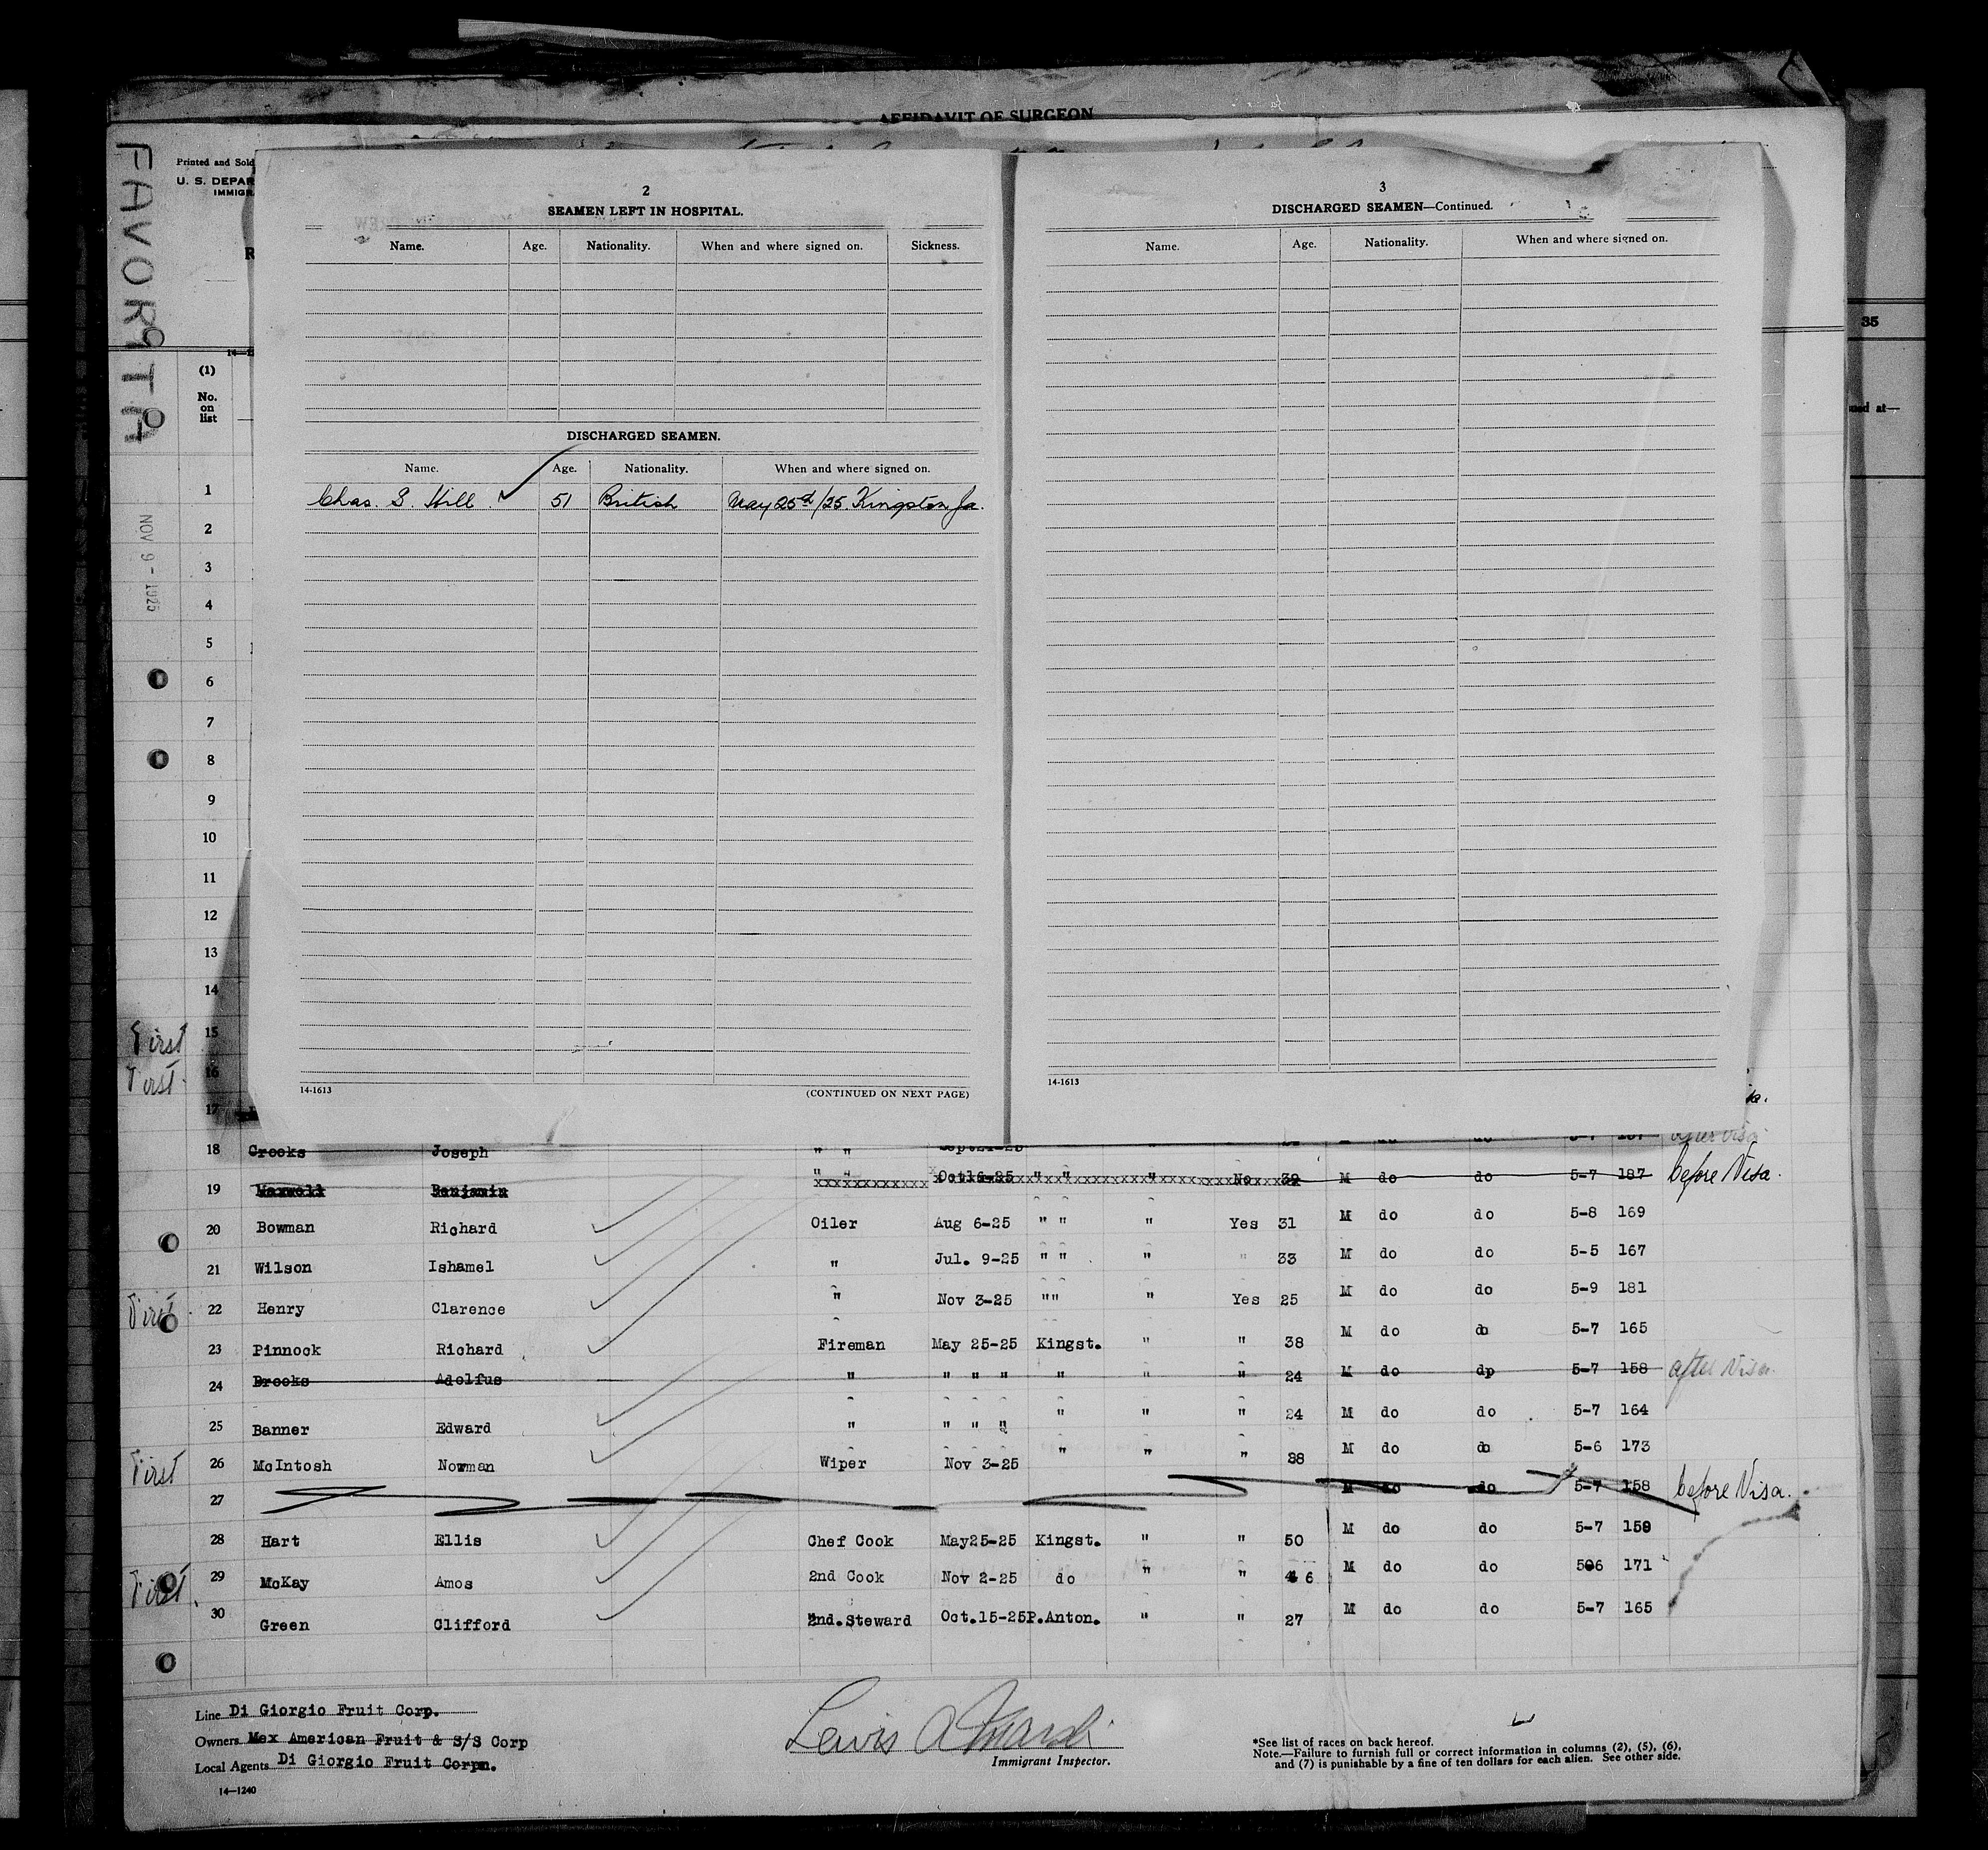 AFFIDAVIT OF SURGEON
FAVORITA
Printed and Sold
U. S. DEPAR
IMMIGR
R
35
(1)
No.
on
list
NOV 9 - 1925
2
SEAMEN LEFT IN HOSPITAL.
Name. Age. Nationality. When and where signed on. Sickness.
DISCHARGED SEAMEN.
Name. Age. Nationality. When and where signed on.
Chas. S. Hill 51 British May 25th/25 Kingston Ja.
14-1613 (CONTINUED ON NEXT PAGE)
3
DISCHARGED SEAMEN—Continued.
Name. Age. Nationality. When and where signed on.
14-1613
1
2
3
4
5
6
7
8
9
10
11
12
13
14
First 15
First 16
17
18 Crooks Joseph " " Sept21-25 after Visa
19 Maxwell Benjamin " " Oct16-25 " " " No 39 M do do 5-7 187 before Visa.
20 Bowman Richard Oiler Aug 6-25 " " " Yes 31 M do do 5-8 169
21 Wilson Ishamel " Jul. 9-25 " " " " 33 M do do 5-5 167
First 22 Henry Clarence " Nov 3-25 "" " Yes 25 M do do 5-9 181
23 Pinnock Richard Fireman May 25-25 Kingst. " " 38 M do do 5-7 165
24 Brooks Adolfus " " " " " " " 24 M do dp 5-7 158 after Visa.
25 Banner Edward " " " " " " " 24 M do do 5-7 164
First 26 McIntosh Norman Wiper Nov 3-25 " " " 38 M do do 5-6 173
27 M do do 5-7 158 before Visa.
28 Hart Ellis Chef Cook May25-25 Kingst. " " 50 M do do 5-7 159
First 29 McKay Amos 2nd Cook Nov 2-25 do " " 46 M do do 506 171
30 Green Clifford 2nd.Steward Oct.15-25P.Anton. " " 27 M do do 5-7 165
Line Di Giorgio Fruit Corp.
Owners Mex American Fruit & S/S Corp
Local Agents Di Giorgio Fruit Corpn.
14—1240
Immigrant Inspector.
*See list of races on back hereof.
Note.—Failure to furnish full or correct information in columns (2), (5), (6),
and (7) is punishable by a fine of ten dollars for each alien. See other side.